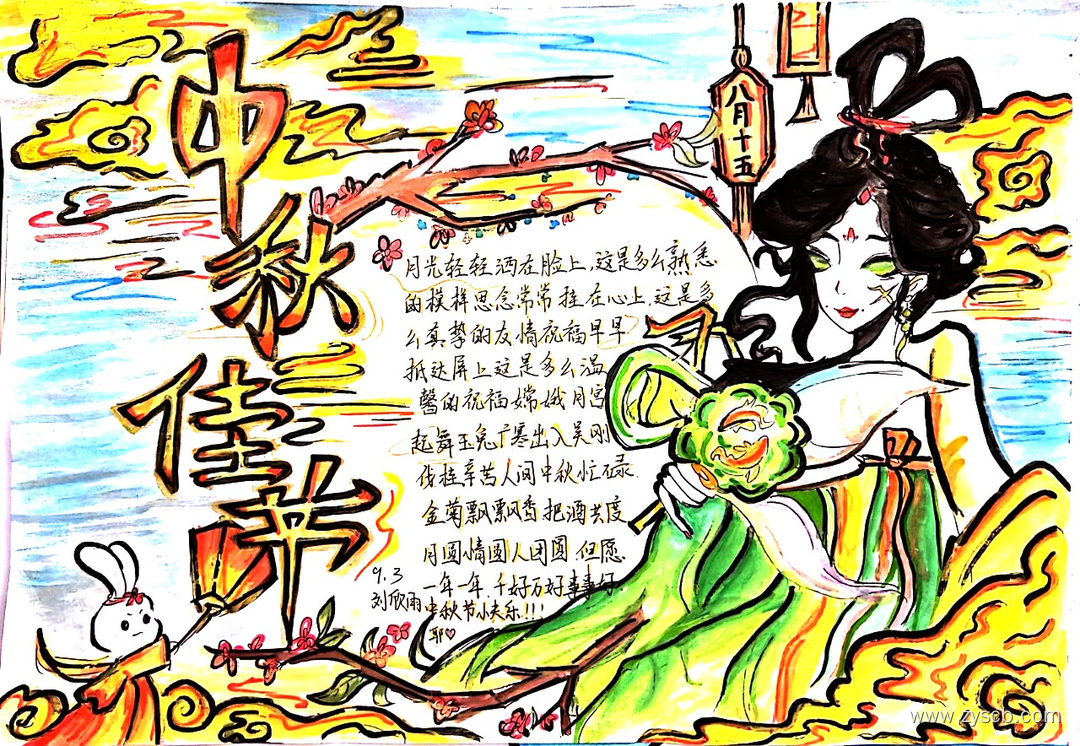 中秋佳节
八月十五
月光轻轻洒在脸上,这是多么熟悉
的模样思念常常挂在心上,这是多
么真挚的友情祝福早早
抵达屏上这是多么温
馨的祝福嫦娥月宫
起舞玉兔广寒出入吴刚
伐桂辛苦人间中秋忙碌
金菊飘飘香把酒共度
月圆情圆人团圆但愿
一年一年,千好万好事事好
9.3
刘欣雨
中秋节快乐!!!
耶♡
www.zyscb.com